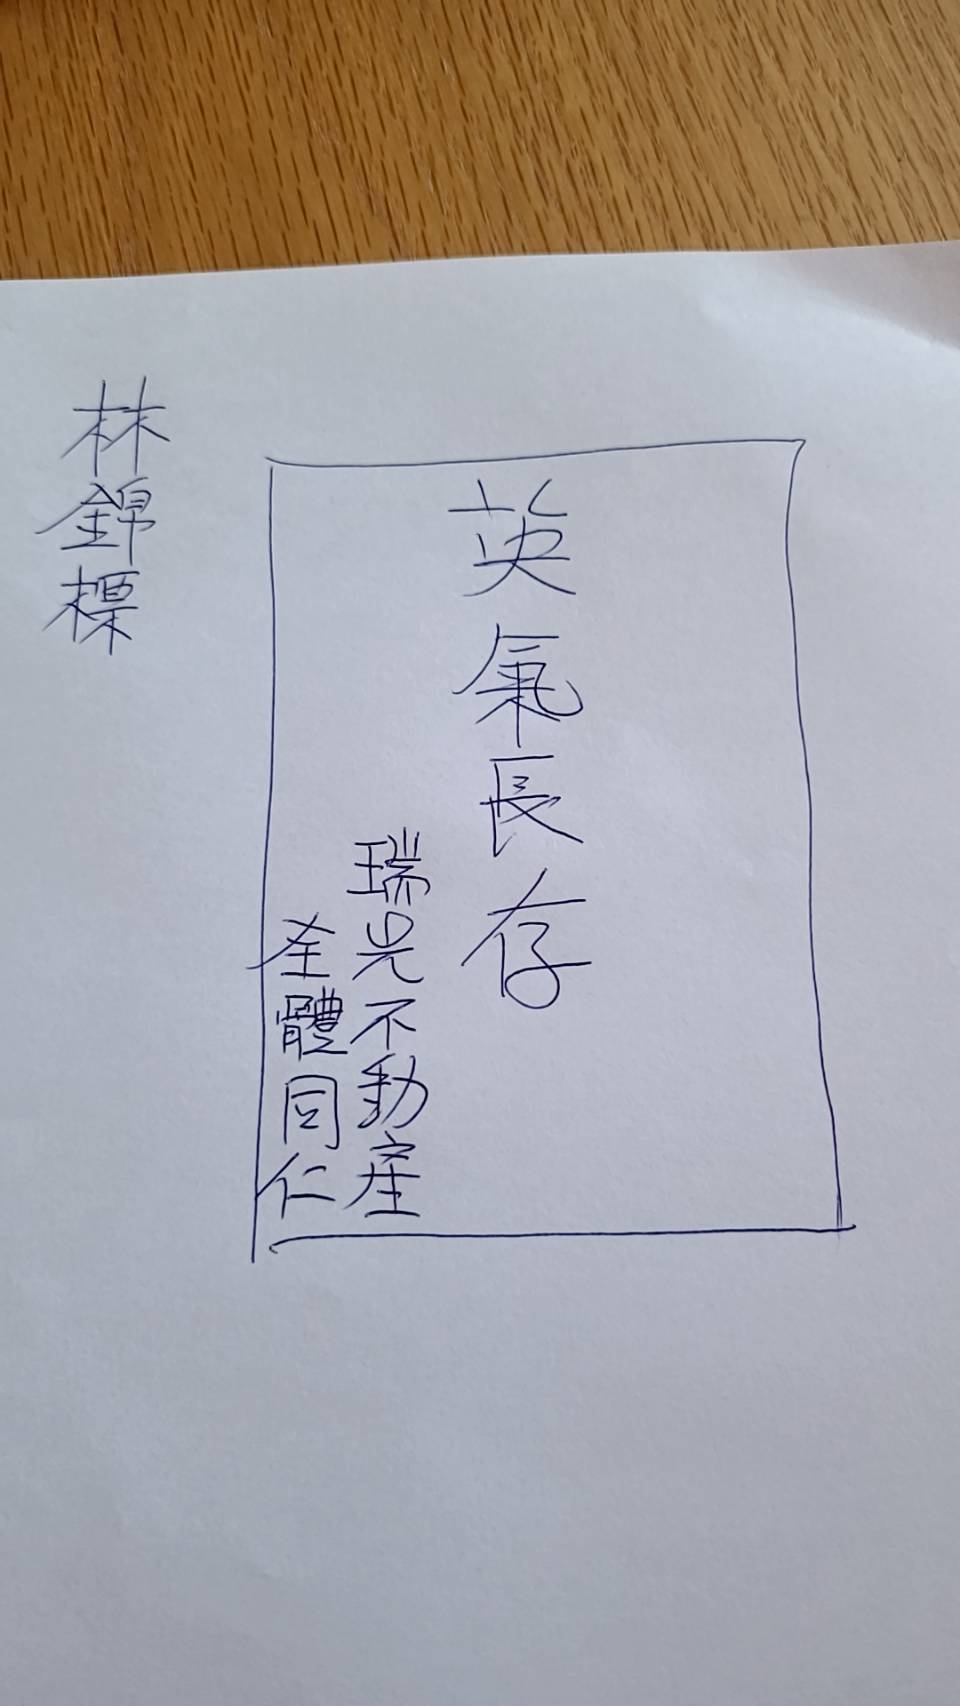 英氣長存
瑞光不動產
全體同仁
林錦標